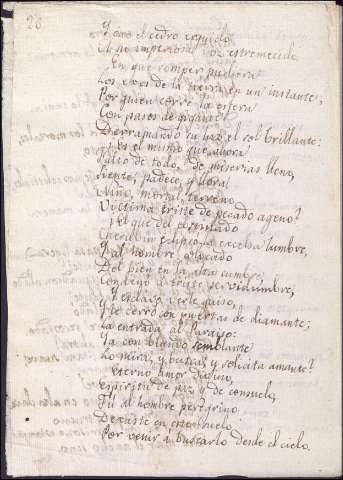 28
Y como el cedro erguido
Oh no imperiosa voz estremecido
En que romper pudiera
Los exes de la tierra en un instante;
Por quien corre la esfera
Con pasos de gigante
Derramando su luz el sol brillante:
Es el mismo que ahora
Falto de todo, de miserias lleno,
Siente, padece, y llora
Niño, mortal, terreno
Victima triste de pecado ageno?
El que del
Cherubin eclipsó la excelsa lumbre,
Y al hombre, colocado
Del bien en la alta cumbre,
Condenó á dura servidumbre,
Y esclavo verle quiso,
Y le cerró con puertas de diamante;
La entrada al Paraiso:
Ya con blando semblante
Lo mira, y busca, y solicita amante?
O eterno Amor divino,
Espiritu de paz, y de consuelo,
Tú al hombre peregrino
Dexaste en este suelo
Por venir a buscarlo desde el cielo.